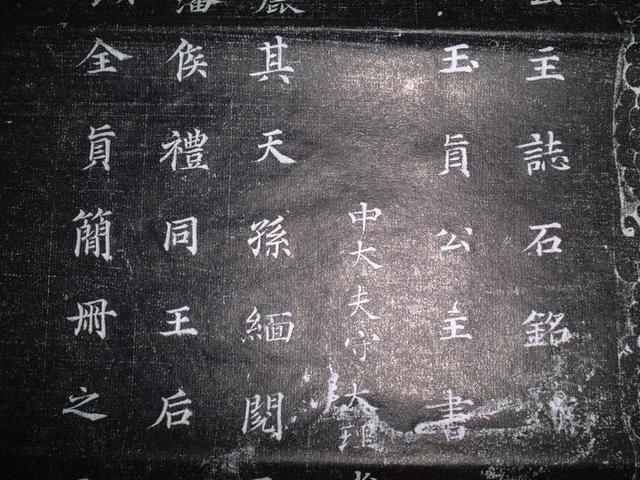 主誌石銘
玉貞公主書
中大夫守大理
其天孫緬閱
侯禮同王后
全貞簡冊之